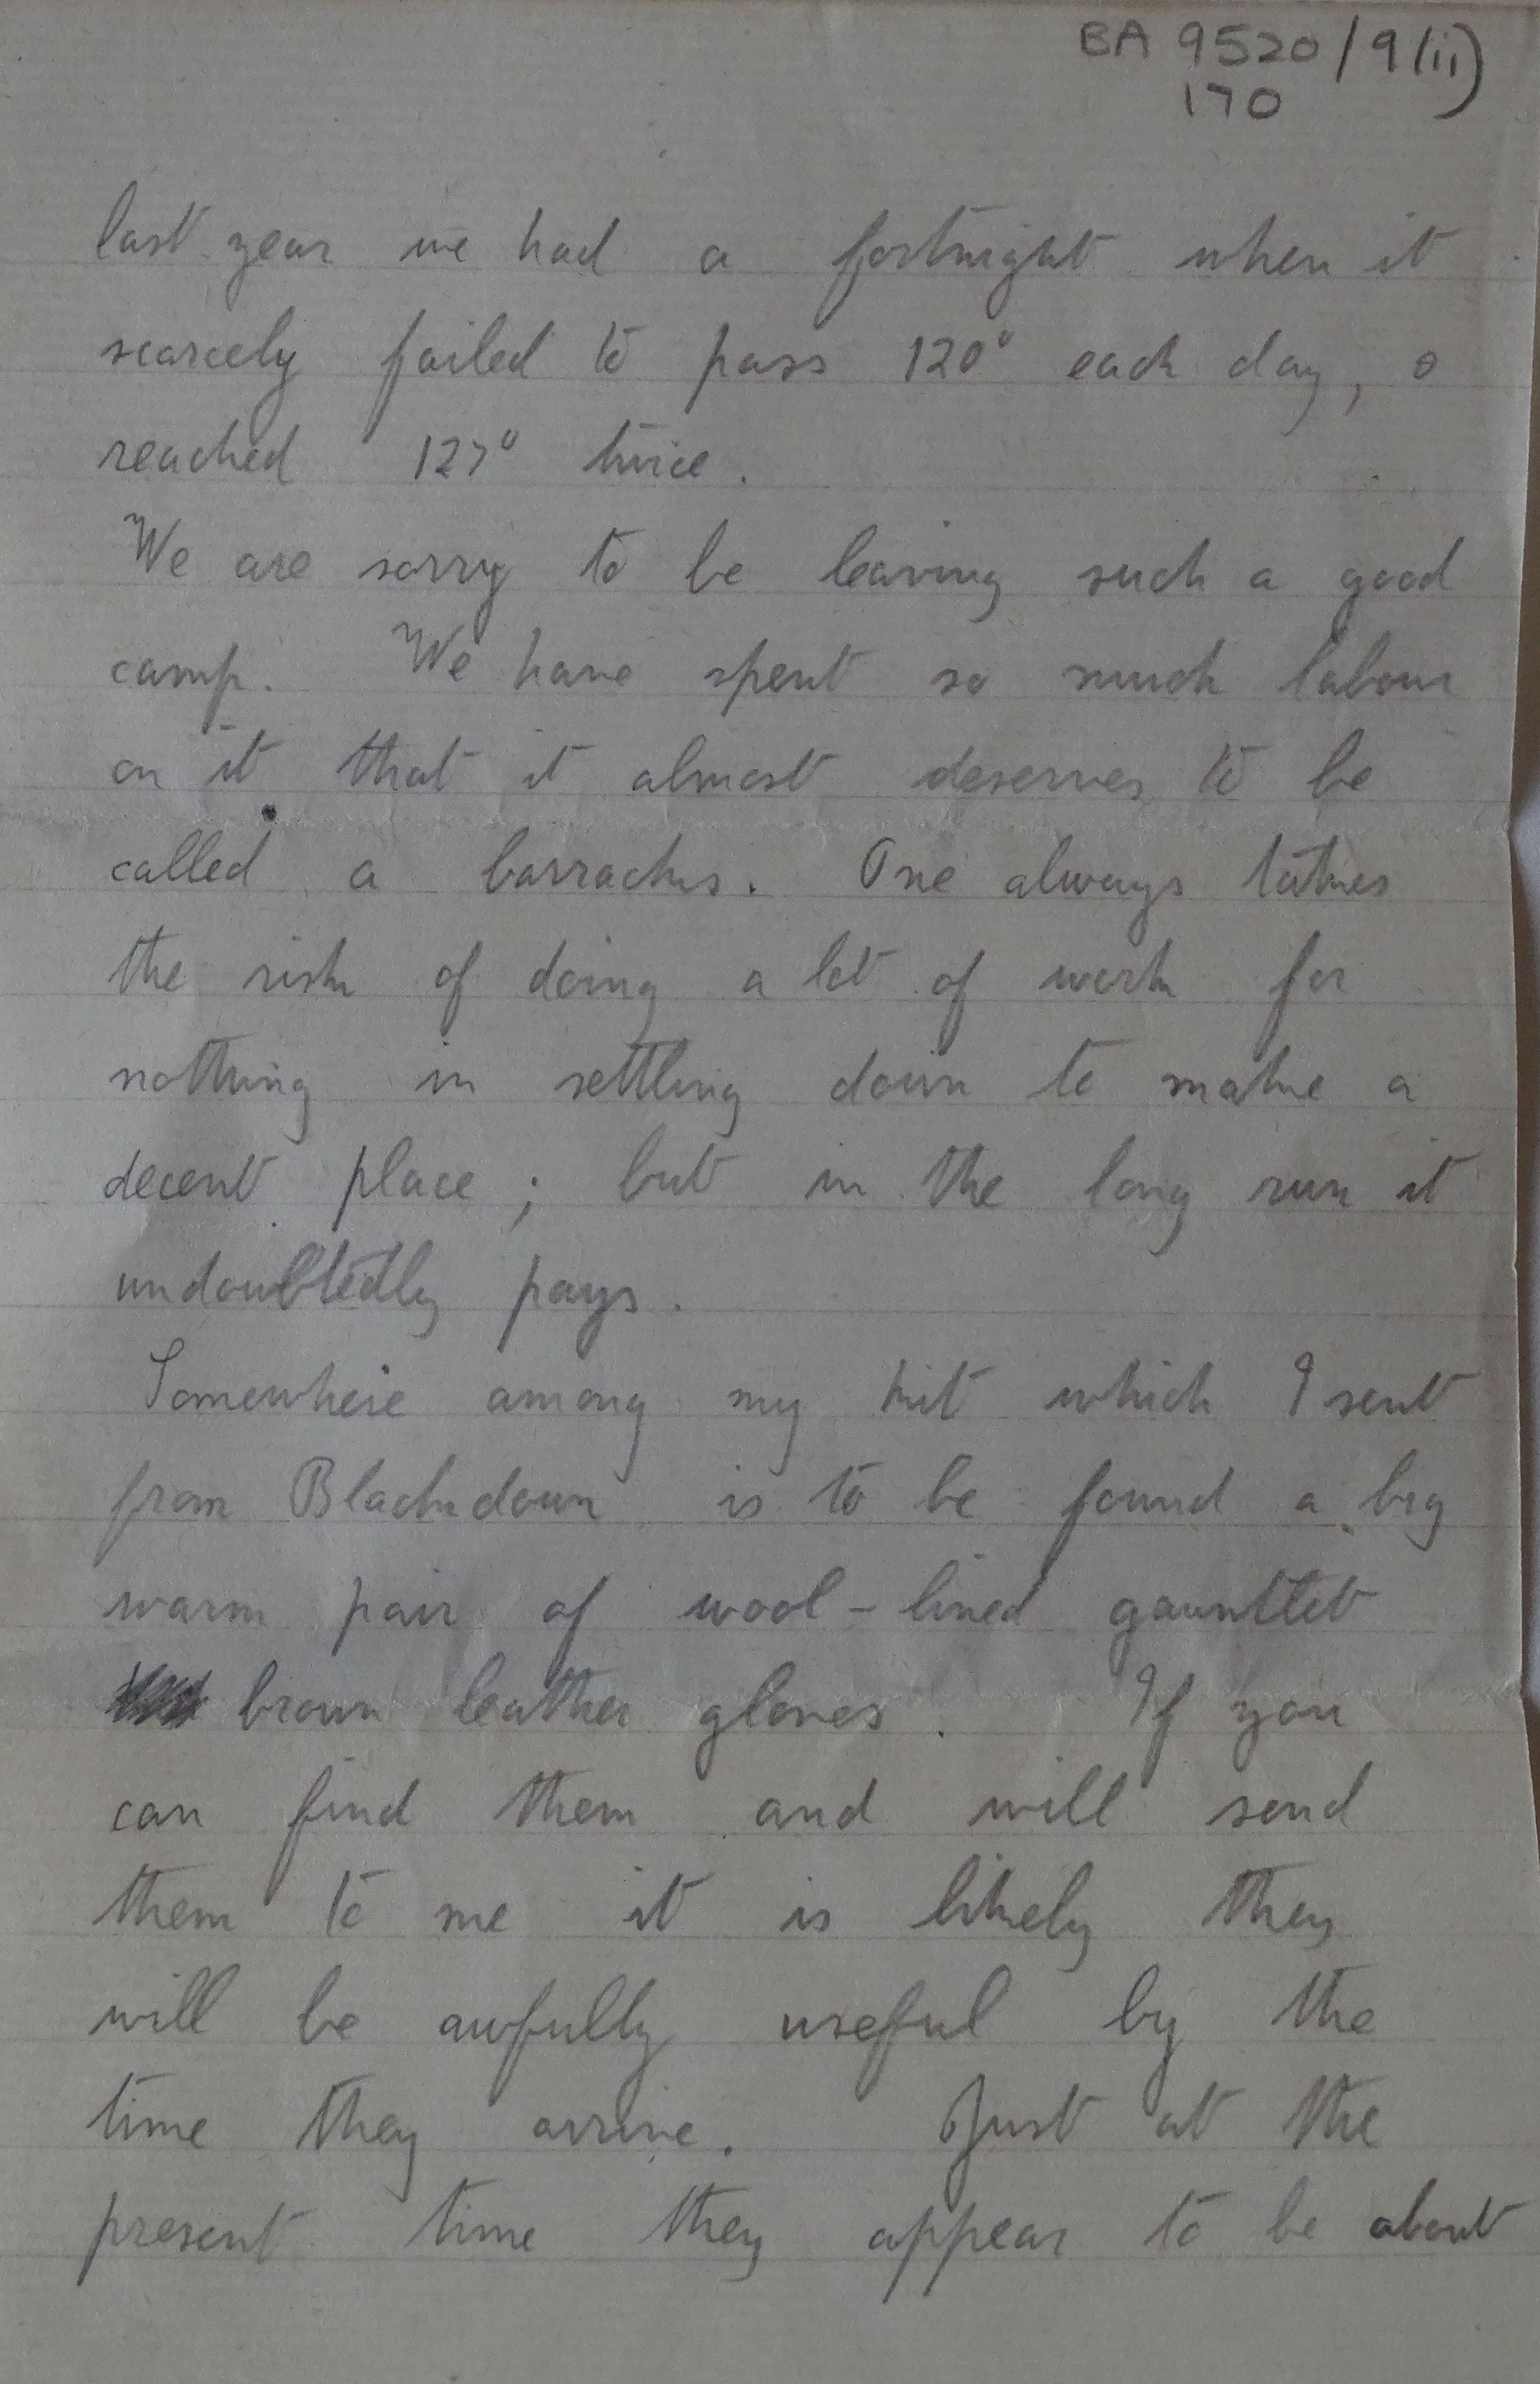 BA 9520/9(ii)
170
last year we had a fortnight when it
scarcely failed to pass 120° each day, &
reached 127° twice.
We are sorry to be leaving such a good
camp. We have spent so much labour
on it that it almost deserves to be
called a barracks. One always takes
the risk of doing a lot of work for
nothing in settling down to make a
decent place; but in the long run it
undoubtedly pays.
Somewhere among my kit which I sent
from Blackdown is to be found a big
warm pair of wool-lined gauntlet
brown leather gloves. If you
can find them and will send
them to me it is likely they
will be awfully useful by the
time they arrive. Just at the
present time they appear to be about